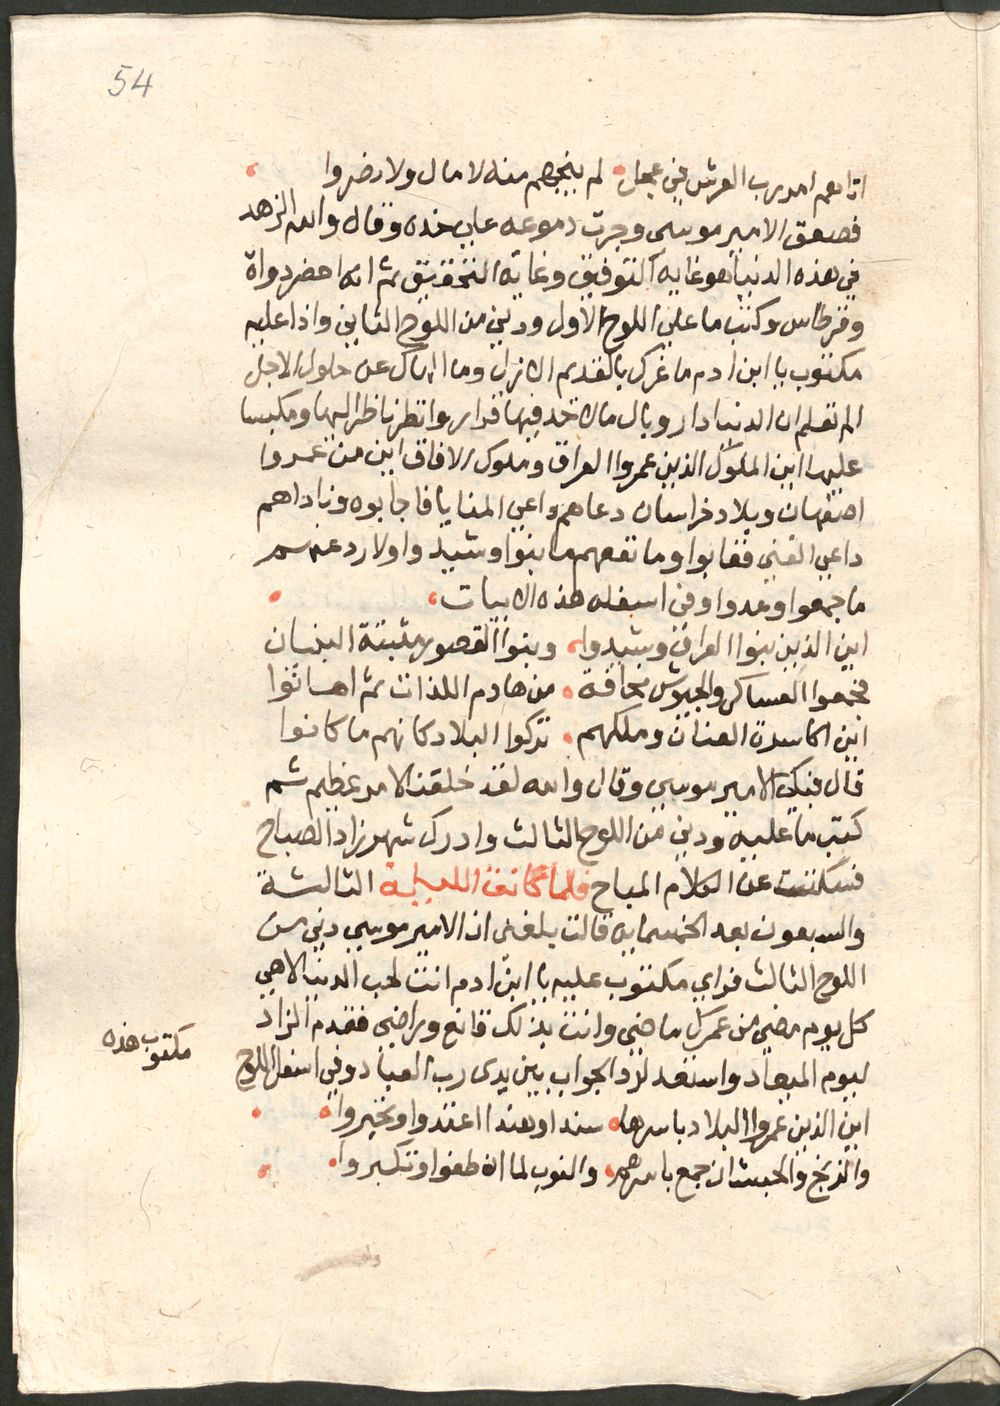 54
اتاهم امر رب العرش في عجل لم ينجهم منه لا مال ولا نصروا
فصعق الامير موسى وجرت دموعه علي خده وقال والله الزهد
في هذه الدنيا هو غاية التوفيق وغاية التحقيق ثم انه احضر دواة
وقرطاس وكتب ما علي اللوح الاول ودني من اللوح الثاني واذا عليه
مكتوب يا ابن ادم ما غرك بالقديم الازل وما الهاك عن حلول الاجل
الم تعلم ان الدنيا دار وبال ما لاحد فيها قرار وانظر ناظر اليها ومكبسا
عليها اين الملوك الذين عمروا العراق وملوك الافاق اين من عمروا
اصفهان وبلاد خراسان دعاهم داعي المنايا فاجابوه وناداهم
داعي الفني فغابوا وما نفعهم ما بنوا وشيد واولا رد عنهم
ما جمعوا وعدوا وفي اسفله هذه الابيات
اين الذين بنوا العراق وشيدوا وبنوا القصور مثبتة البنيان
فجمعوا العساكر والجيوش مخافة من هادم اللذات ثم اهانوا
اين اكاسرة العنان وملكهم تركوا البلاد كانهم ما كانوا
قال فبكى الامير موسى وقال والله لقد خلقنا لامر عظيم ثم
كتب ما عليه ودني من اللوح الثالث وادرك شهرزاد الصباح
فسكتت عن الكلام المباح فلما كانت الليلة الثالثة
والسبعون بعد الخمسماية قالت بلغني ان الامير موسى دني من
اللوح الثالث فراي مكتوب عليه يا ابن ادم انت لحب الدنيا لاهي
كل يوم مضي من عمرك ماضي وانت بذلك قانع وراضي فقدم الزاد
ليوم الميعاد واستعد لرد الجواب بين يدى رب العباد وفي اسفل اللوح
مكتوب هذه
اين الذين عمروا البلاد باسرها سندا وهندا اعتدوا وتجبروا
والزنج والحبشان جمع باسرهم والنوب لما ان طغوا وتكبروا